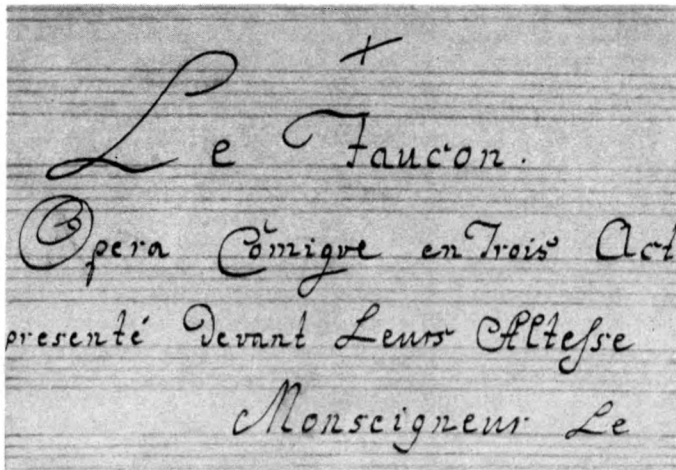 Le Faucon.
Opera Comique en Trois Act
presenté Devant Leurs Altesse
Monseigneur Le